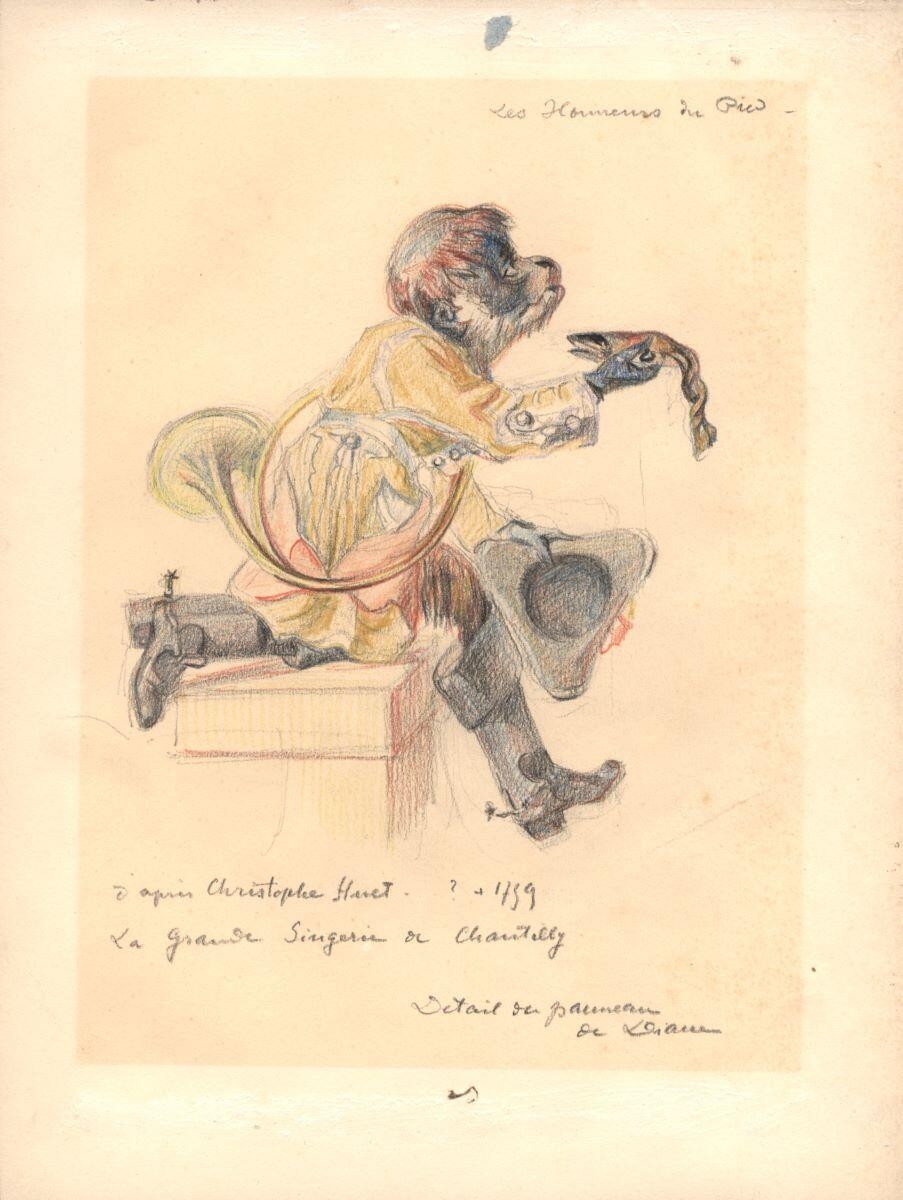 Les Honneurs du Pied -
d'après Christophe Huet. ? + 1759
La Grande Singerie de Chantilly
Détail du panneau
de Diane